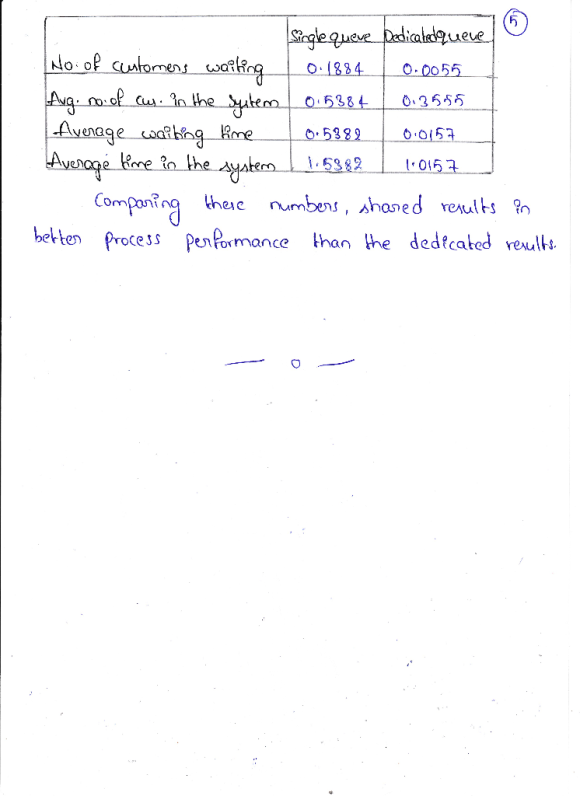 5
Single queue Dedicated queue
No. of customers waiting 0.1884 0.0055
Avg. no. of cus. in the system 0.5384 0.3555
Average waiting time 0.5382 0.0157
Average time in the system 1.5382 1.0157
Comparing these numbers, shared results in
better process performance than the dedicated results.
— o —